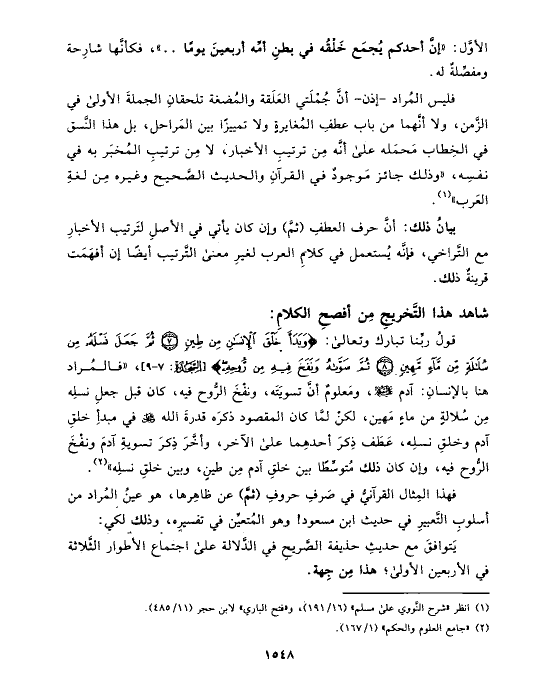 الأوَّل: «إنَّ أحدكم يُجمَع خَلْقُه في بطنِ أمِّه أربعينَ يومًا ..»، فكأنَّها شارِحة
ومفصِّلةٌ له.
فليس المُراد -إذن- أنَّ جُمْلَتي العَلَقة والمُضغة تلحقانِ الجملةَ الأولىٰ في
الزَّمن، ولا أنَّهما من باب عطفِ المُغايرةِ ولا تمييزًا بين المَراحل، بل هذا النَّسق
في الخِطاب مَحمَله علىٰ أنَّه مِن ترتيبِ الأخبار، لا مِن ترتيبِ المُخبَر به في
نفسِه، «وذلك جائز مَوجودٌ في القرآنِ والحديث الصَّحيح وغيره مِن لغةِ
العَرب»(١).
بيانُ ذلك: أنَّ حرف العطفِ (ثمَّ) وإن كان يأتي في الأصلِ لتَرتيب الأخبار
مع التَّراخي، فإنَّه يُستعمل في كلامِ العرب لغيرِ معنىٰ التَّرتيب أيضًا إن أفهَمَت
قرينةٌ ذلك.
شاهد هذا التَّخريجِ مِن أفصحِ الكلامِ:
قولُ ربِّنا تبارك وتعالىٰ: ﴿وَبَدَأَ خَلْقَ الْإِنسَانِ مِن طِينٍ ۝٧ ثُمَّ جَعَلَ نَسْلَهُ مِن
سُلَالَةٍ مِّن مَّاءٍ مَّهِينٍ ۝٨ ثُمَّ سَوَّاهُ وَنَفَخَ فِيهِ مِن رُّوحِهِ﴾ [السَّجْدَة: ٧-٩]، «فـالـمُـراد
هنا بالإنسانِ: آدم ﷺ، ومَعلومٌ أنَّ تسويَتَه، ونَفْخَ الرُّوح فيه، كان قبل جعلِ نسلِه
مِن سُلالةٍ من ماءٍ مَهين، لكنْ لمَّا كان المقصود ذكرَه قدرةَ الله ﷻ في مبدأِ خلقِ
آدم وخلقِ نسلِه، عَطَف ذِكرَ أحدِهما علىٰ الآخر، وأخَّر ذِكرَ تسويةِ آدمَ ونفْخَ
الرُّوح فيه، وإن كان ذلك مُتوسِّطًا بين خلقِ آدم مِن طينٍ، وبين خلقِ نسلِه»(٢).
فهذا المِثال القرآنيُّ في صَرفِ حروفِ (ثمَّ) عن ظاهرِها، هو عينُ المُراد من
أسلوبِ التَّعبيرِ في حديث ابن مسعود! وهو المُتعيِّن في تفسيره، وذلك لكي:
يَتوافقَ مع حديثِ حذيفة الصَّريح في الدَّلالة علىٰ اجتماع الأطوارِ الثَّلاثة
في الأربعين الأولىٰ؛ هذا مِن جِهة.
(١) انظر «شرح النَّووي علىٰ مسلم» (١٩١/١٦)، و«فتح الباري» لابن حجر (٤٨٥/١١).
(٢) «جامع العلوم والحكم» (١٦٧/١).
١٥٤٨